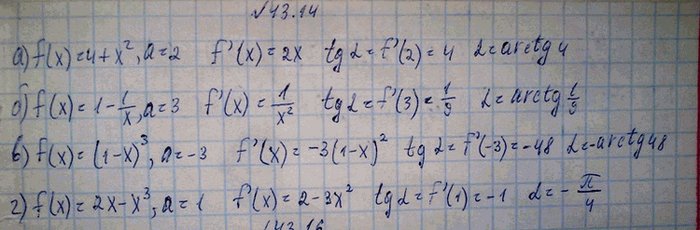 №43.14
а) f(x)=4+x², a=2 f'(x)=2x tg α=f'(2)=4 α=arctg 4
б) f(x)=1-1/x, a=3 f'(x)=1/x² tg α=f'(3)=1/9 α=arctg 1/9
в) f(x)=(1-x)³, a=-3 f'(x)=-3(1-x)² tg α=f'(-3)=-48 α=-arctg48
г) f(x)=2x-x³, a=1 f'(x)=2-3x² tg α=f'(1)=-1 α=-π/4